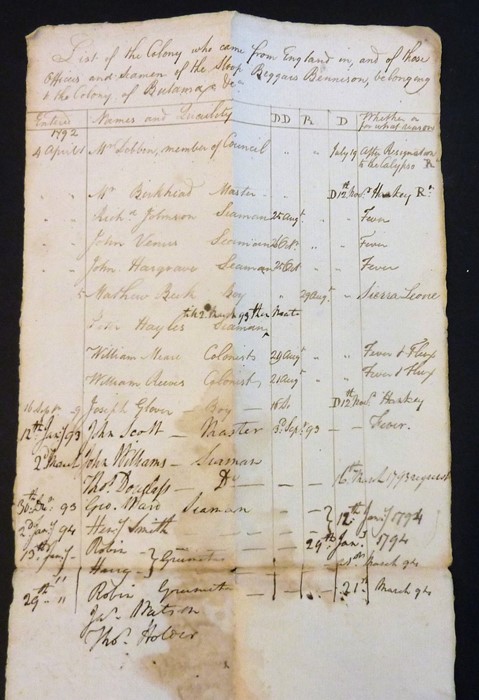 List of the Colony who came from England in, and of those
Officers and Seamen of the Sloop Beggars Bennison, belonging
to the Colony of Bulama, &c
Entrie Names and Quality DD R D Whether or
1792 for what reason
4 April 1 Mr Dobbin, member of Council " " July 19 After Resignation
to the Calypso R
" " Mr Birkhead Master " " D 12th Novr Hankey Rn
" " Richd Johnson Seaman 25 Augt " " Fever
" " John Venus Seaman Octr " " Fever
" " John Hargrave Seaman 25 Oct " " Fever
" 5 Mathew Berk Boy " 29 Augt " Sierra Leone
till 2 March 93 then Mate
John Hayles Seaman
William Meare Colonists 24 Augt " " Fever & Flux
William Reeves Colonist 21 Augt " " Fever & Flux
16 Septr 9 Joseph Glover Boy — 16 Do D 12th Novr Hankey
12th Jany 93 John Scott — Master 3d Septr 93 — — Fever.
2d March John Williams — Seaman
Thos Douglass — Do — — — 16th March 1793
30th Dr 93 Geo. Ward Seaman — —
2d Jany 94 Heny Smith — — — 12th Jany 1794
13th Jany Robin — — 29th Jany 1794
" Harry — Grumets — — — March 94
29th " Robin Grumet — — — 21st March 94
Jas Watson
Thos Holder